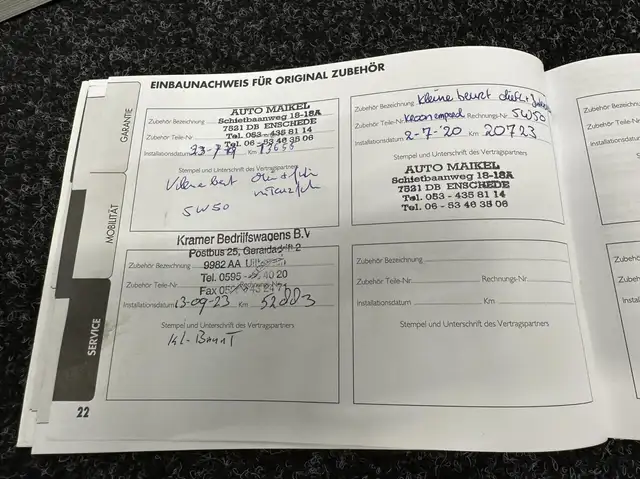 EINBAUNACHWEIS FÜR ORIGINAL ZUBEHÖR
GARANTIE
MOBILITÄT
SERVICE
Zubehör Bezeichnung
AUTO MAIKEL
Schietbaanweg 18-18A
7521 DB ENSCHEDE
Tel. 053 - 435 81 14
Tel. 06 - 53 46 38 06
Zubehör Teile-Nr.
Installationsdatum 23-7-19 Km
Stempel und Unterschrift des Vertragspartners
5W50
Zubehör Bezeichnung Kleine beurt
Zubehör Teile-Nr. Rechnungs-Nr. 5W50
Installationsdatum 2-7-'20 Km 20723
Stempel und Unterschrift des Vertragspartners
AUTO MAIKEL
Schietbaanweg 18-18A
7521 DB ENSCHEDE
Tel. 053 - 435 81 14
Tel. 06 - 53 46 38 06
Kramer Bedrijfswagens B.V
Postbus 25,
9982 AA
Tel. 0595 - 40 20
Fax
Zubehör Bezeichnung
Zubehör Teile-Nr.
Installationsdatum 13-09-23 Km 52003
Stempel und Unterschrift des Vertragspartners
Kl-
Zubehör Bezeichnung
Zubehör Teile-Nr. Rechnungs-Nr.
Installationsdatum Km
Stempel und Unterschrift des Vertragspartners
22